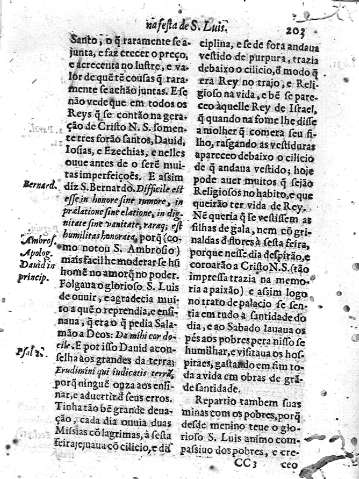 na festa de S. Luis.
203
Santo, o q̃ raramente se a-
junta, e faz crecer o preço,
e acrecenta no lustre, e va-
lor de quẽ tẽ cousas q̃ rara-
mente se achão juntas. E se
não vede que em todos os
Reys q̃ se contão na gera-
ção de Cristo N. S. somen-
te tres forão santos, Dauid,
Iosias, e Ezechias, e nelles
ouue antes de o serẽ mui-
tas imperfeiçoẽs. E assim
diz S. Bernardo. Difficile est
esse in honore sine tumore, in
prælatione sine elatione, in dig-
nitate sine vanitate, raraq; est
humilitas honorata, porq̃ (co-
mo notou S. Ambrosio)
mais facil he moderar se hũ
homẽ no amor q̃ no poder.
Folgaua o glorioso S. Luis
de ouuir, e agradecia mui-
to a quẽ o reprendia, e ensi-
naua, q̃ era o q̃ pedia Sala-
mão a Deos: Da mihi cor do-
cile. E por isso Dauid acon-
selha aos grandes da terra:
Erudimini qui iudicatis terrã,
porq̃ ninguẽ ouza aos ensi-
nar, e aduertir de seus erros.
Tinha tão bẽ grande deua-
ção, cada dia ouuia duas
Missas cõ lagrimas, à sesta
feira jejuaua cõ cilicio, e dis
Bernard.
Ambros.
Apolog.
Dauid in
princip.
Psal. 2.
ciplina, e se de fora andaua
vestido de purpura, trazia
debaixo o cilicio, õ modo q̃
era Rey no trajo, e Reli-
gioso na vida, e bẽ se pare-
ceo àquelle Rey de Israel,
q̃ quando na fome lhe disse
a molher q̃ comera seu fi-
lho, rasgando as vestiduras
apareceo debaixo o cilicio
de q̃ andaua vestido; hoje
pode auer muitos q̃ sejão
Religiosos no habito, e que
queirão ter vida de Rey.
Nẽ queria q̃ se vestissem as
filhas de gala, nem cõ gri-
naldas d flores à sesta feira,
porque nesse dia despirão, e
coroarão a Cristo N. S. (tão
impressa trazia na memo-
ria a paixão) e assim logo
no trato de palacio se sen-
tia em tudo a santidade do
dia, e ao Sabado lauaua os
pés aos pobres pera nisso se
humilhar, e visitaua os hos-
pitaes, gastando em fim to-
da a vida em obras de grã
de santidade.
Repartio tambem suas
minas com os pobres, porq̃
desde menino teue o glo-
rioso S. Luis animo com-
passiuo dos pobres, e cre-
CC3
ceo